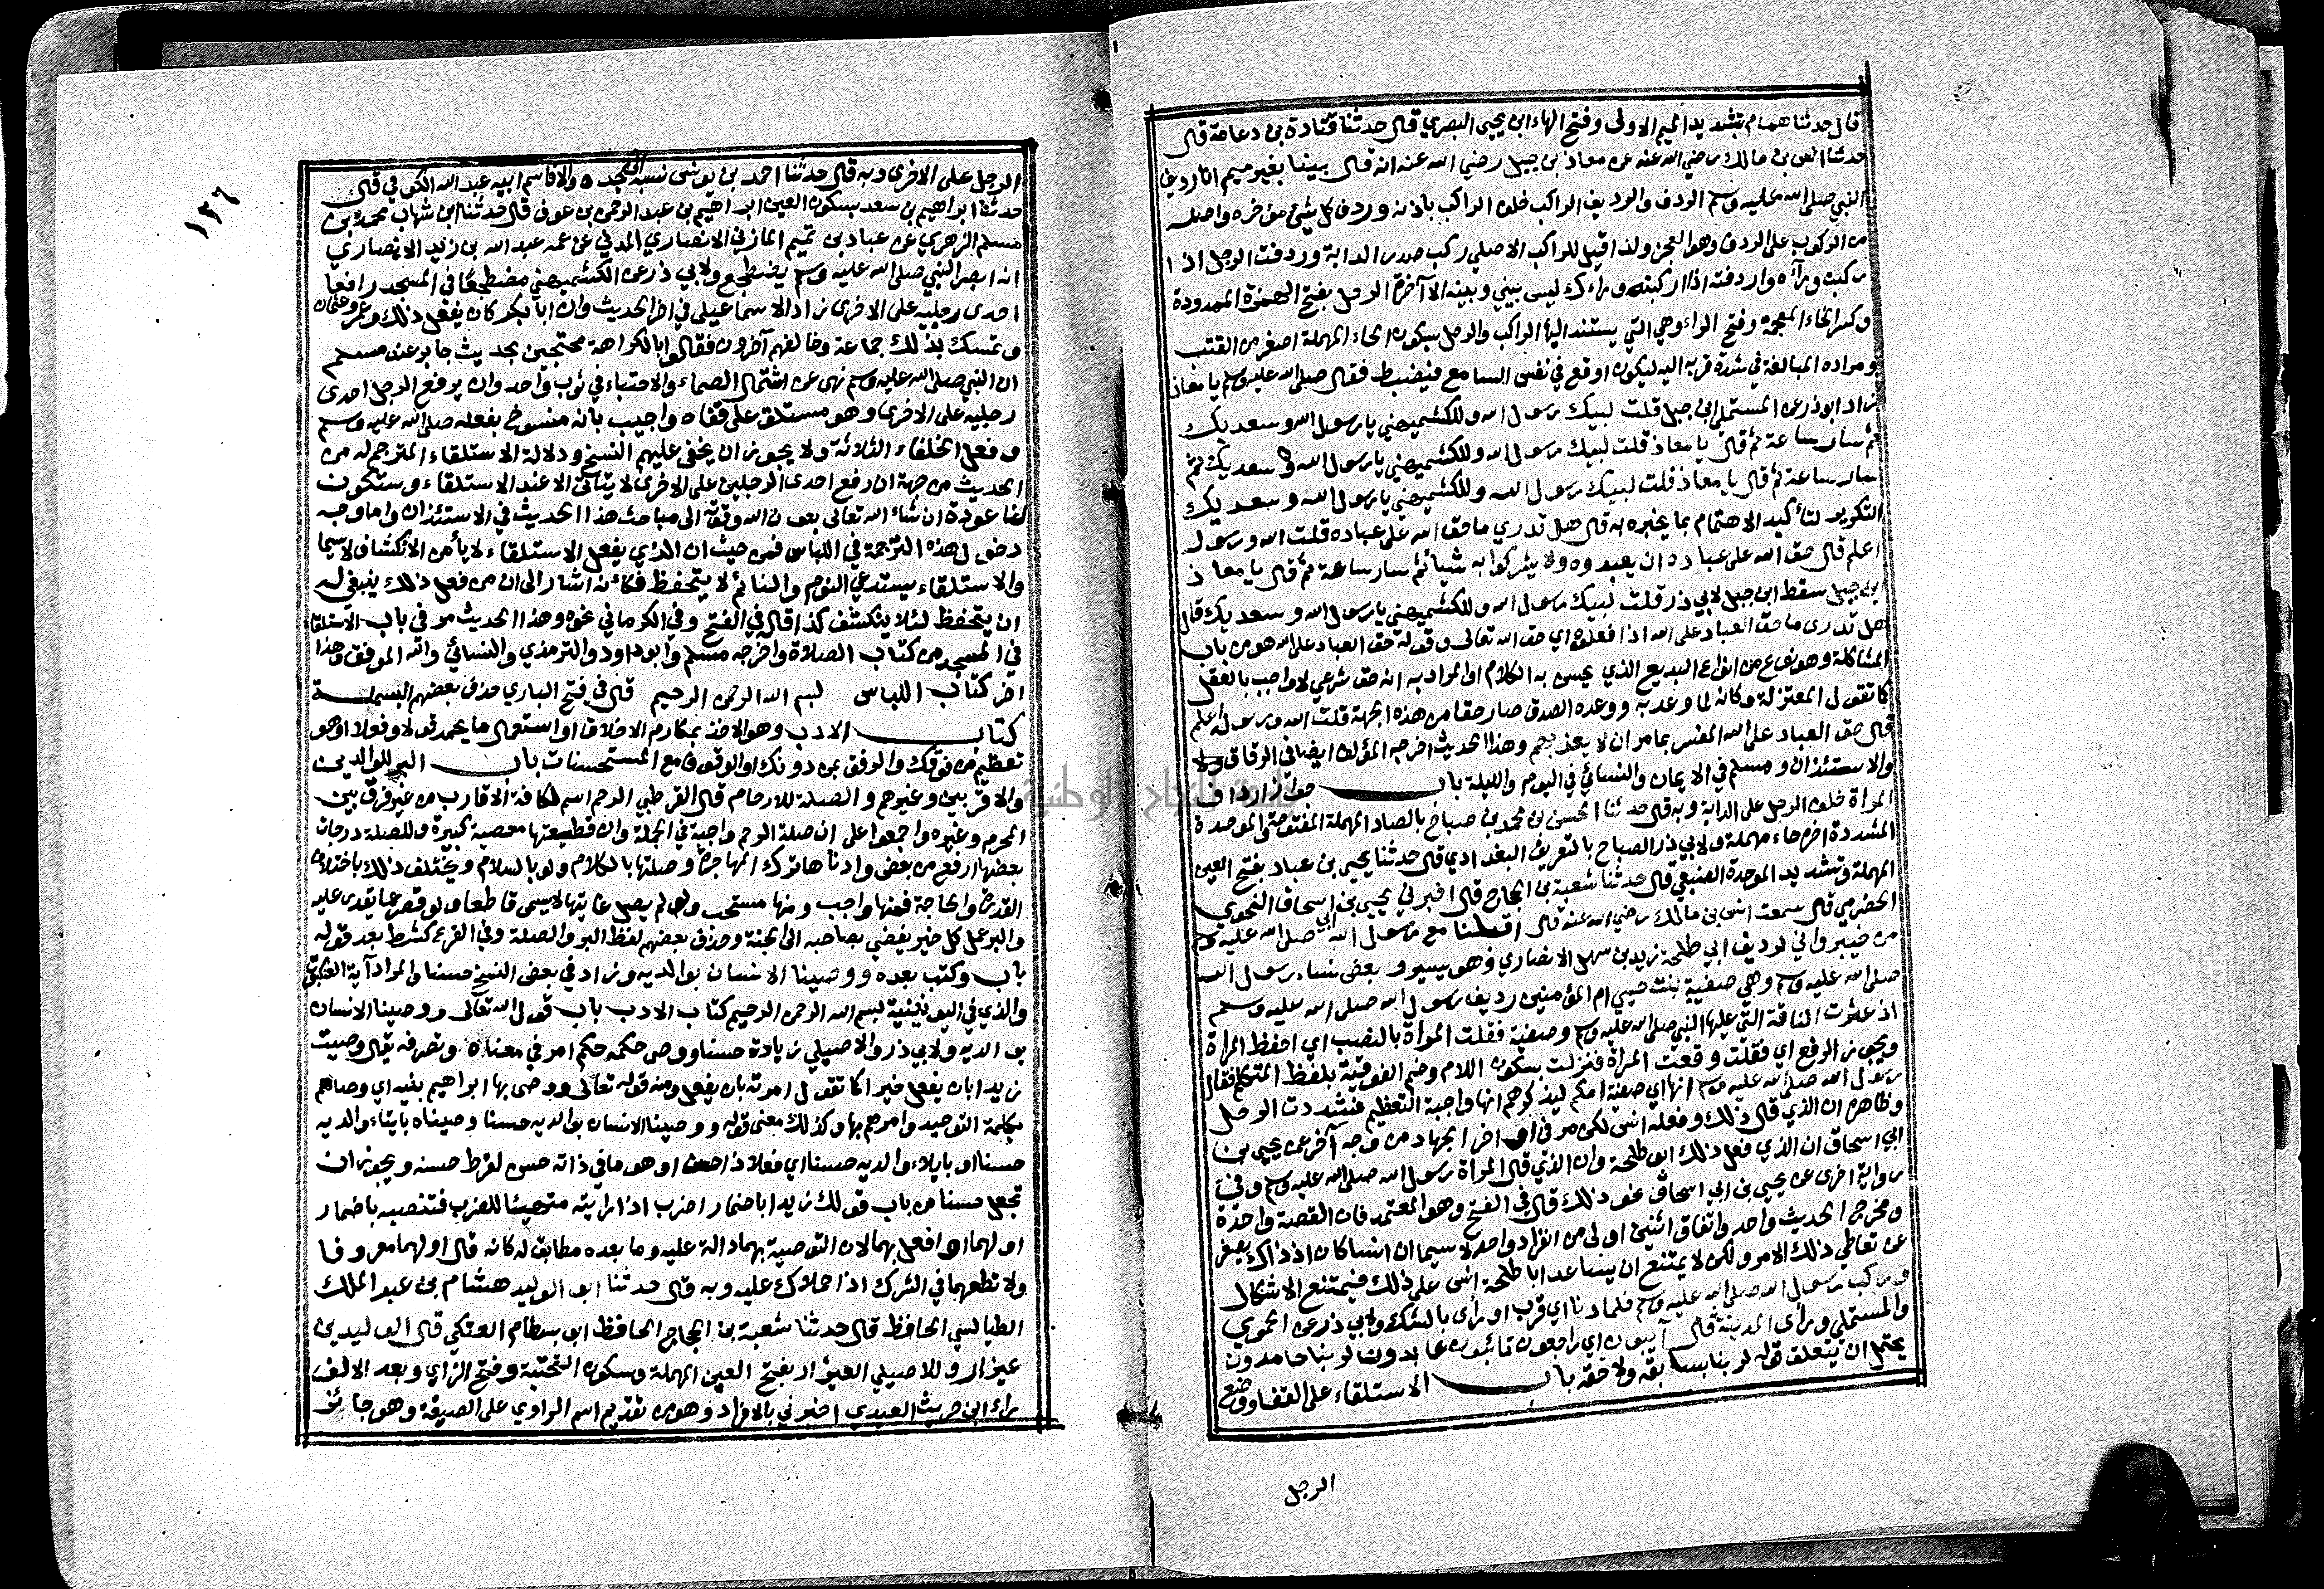 قال حدثنا همام بتشديد الميم الاولى وفتح الهاء ابن يحيى البصري قال حدثنا قتادة بن دعامة قال
حدثنا انس بن مالك رضي الله عنه عن معاذ بن جبل رضي الله عنه انه قال بينا بغير ميم انا رديف
النبي صلى الله عليه وسلم الردف والرديف الراكب خلف الراكب باذنه وردف كل شيئ مؤخره واصله
من الركوب على الردف وهو العجز ولذا قيل للراكب الاصلي ركب صدر الدابة وردفت الرجل اذا
ركبت وراءه واردفته اذا اركبته وراءك ليس بيني وبينه الا آخرة الرحل بفتح الهمزة الممدودة
وكسر الخاء المعجمة وفتح الراء وهي التي يستند اليها الراكب والرحل بسكون الحاء المهملة اصغر من القتب
ومراده المبالغة في شدة قربه اليه ليكون اوقع في نفس السامع فيضبط فقال صلى الله عليه وسلم يا معاذ
زاد ابو ذر عن المستملي ابن جبل قلت لبيك رسول الله وللكشميهني يا رسول الله وسعديك
ثم سار ساعة ثم قال يا معاذ قلت لبيك رسول الله وللكشميهني يا رسول الله وسعديك ثم
سار ساعة ثم قال يا معاذ قلت لبيك رسول الله وللكشميهني يا رسول الله وسعديك
التكرير لتأكيد الاهتمام بما يخبره به قال هل تدري ما حق الله على عباده قلت الله ورسوله
اعلم قال حق الله على عباده ان يعبدوه ولا يشركوا به شيأ ثم سار ساعة ثم قال يا معاذ
ابن جبل سقط ابن جبل لابي ذر قلت لبيك رسول الله وللكشميهني يا رسول الله وسعديك قال
هل تدرى ما حق العباد على الله اذا فعلوه اي حق الله تعالى وقوله حق العباد على الله هو من باب
المشاكلة وهو نوع من انواع البديع الذي يحسن به الكلام او المراد به انه حق شرعي لا واجب بالعقل
كما تقول المعتزلة وكانه لما وعد به ووعده الصدق صار حقا من هذه الجهة قلت الله ورسوله اعلم
قال حق العباد على الله المفسر بما مر ان لا يعذبهم وهذا الحديث اخرجه المؤلف ايضا في الرقاق
والاستئذان ومسلم في الايمان والنسائي في اليوم والليلة باب جواز ارداف
المراة خلف الرجل على الدابة وبه قال حدثنا الحسن بن محمد بن صباح بالصاد المهملة المفتوحة والموحدة
المشددة اخره حاء مهملة ولابي ذر الصباح بالتعريف البغدادي قال حدثنا يحيى بن عباد بفتح العين
المهملة وتشديد الموحدة الضبعي قال حدثنا شعبة بن الحجاج قال اخبرني يحيى بن ابي اسحاق النحوي
الحضرمي قال سمعت انس بن مالك رضي الله عنه قال اقبلنا مع رسول الله صلى الله عليه وسلم
من خيبر واني لرديف ابي طلحة زيد بن سهل الانصاري وهو يسير وبعض نساء رسول الله
صلى الله عليه وسلم وهي صفية بنت حيي ام المؤمنين رديف رسول الله صلى الله عليه وسلم
اذ عثرت الناقة التي عليها النبي صلى الله عليه وسلم وصفية فقلت المراة بالنصب اي احفظ المراة
ويجوز الرفع اي فقلت وقعت المراة فنزلت بسكون اللام وضم الفوقية بلفظ المتكلم فقال
رسول الله صلى الله عليه وسلم انها اي صفية امكم ليذكرهم انها واجبة التعظيم فشددت الرحل
وظاهره ان الذي قال ذلك وفعله انس لكن مر في اواخر الجهاد من وجه آخر عن يحيى بن
ابي اسحاق ان الذي فعل ذلك ابو طلحة وان الذي قال المراة رسول الله صلى الله عليه وسلم وفي
رواية اخرى عن يحيى بن ابي اسحاق نحو ذلك قال في الفتح وهو المعتمد فان القصة واحدة
ومخرج الحديث واحد واتفاق اثنين اولى من انفراد واحد لا سيما ان انسا كان اذ ذاك يصغر
عن تعاطي ذلك الامر ولكن لا يمتنع ان يساعد ابا طلحة انس على ذلك فيمتنع الاشكال
وركب رسول الله صلى الله عليه وسلم فلما دنا اي قرب او رأى بالشك ولابي ذر عن الحموي
والمستملي ورأى المدينة قال آيبون اي راجعون تائبون عابدون لربنا حامدون
يحتمل ان يتعلق قوله لربنا بسابقه ولاحقه باب الاستلقاء على القفا ووضع
الرجل
١٣٦
الرجل على الاخرى وبه قال حدثنا احمد بن يونس نسبه لجده والا فاسم ابيه عبد الله الكوفي قال
حدثنا ابراهيم بن سعد بسكون العين ابراهيم بن عبد الرحمن بن عوف قال حدثنا ابن شهاب محمد بن
مسلم الزهري عن عباد بن تميم المازني الانصاري المدني عن عمه عبد الله بن زيد الانصاري
انه ابصر النبي صلى الله عليه وسلم يضطجع ولابي ذر عن الكشميهني مضطجعا في المسجد رافعا
احدى رجليه على الاخرى زاد الاسماعيلي في اخر الحديث وان ابا بكر كان يفعل ذلك وعمر وعثمان
وتمسك بذلك جماعة وخالفهم آخرون فقالوا بالكراهة محتجين بحديث جابر عند مسلم
ان النبي صلى الله عليه وسلم نهى عن اشتمال الصماء والاحتباء في ثوب واحد وان يرفع الرجل احدى
رجليه على الاخرى وهو مستلق على قفاه واجيب بانه منسوخ بفعله صلى الله عليه وسلم
وفعل الخلفاء الثلاثة ولا يجوز ان يخفى عليهم النسخ ودلالة الاستلقاء المترجم له من
الحديث من جهة ان رفع احدى الرجلين على الاخرى لا يتاتى الا عند الاستلقاء وستكون
لنا عودة ان شاء الله تعالى بعون الله وقوته الى مباحث هذا الحديث في الاستئذان واما وجه
دخول هذه الترجمة في اللباس فمن حيث ان الذي يفعل الاستلقاء لا يأمن الانكشاف لا سيما
والاستلقاء يستدعي النوم والنائم لا يتحفظ فكانه اشار الى ان من فعل ذلك ينبغي له
ان يتحفظ لئلا ينكشف كذا قال في الفتح وفي الكرماني نحوه وهذا الحديث مر في باب الاستلقا
في المسجد من كتاب الصلاة واخرجه مسلم وابو داود والترمذي والنسائي والله الموفق وهذا
اخر كتاب اللباس بسم الله الرحمن الرحيم قال في فتح الباري حذف بعضهم البسملة
كتاب الادب وهو الاخذ بمكارم الاخلاق او استعمال ما يحمد قولا وفعلا او هو
تعظيم من فوقك والرفق بمن دونك او الوقوف مع المستحسنات باب البر للوالدين
والاقربين وغيرهم والصلة للارحام قال القرطبي الرحم اسم لكافة الاقارب من غير فرق بين
المحرم وغيره واجمعوا على ان صلة الرحم واجبة في الجملة وان قطيعتها معصية كبيرة وللصلة درجات
بعضها ارفع من بعض وادناها ترك المهاجرة وصلتها بالكلام ولو بالسلام ويختلف ذلك باختلاف
القدرة والحاجة فمنها واجب ومنها مستحب ولو لم يصل غايتها لا يسمى قاطعا ولو قصر عما يقدر عليه
والبر عمل كل خير يفضي بصاحبه الى الجنة وحذف بعضهم لفظ البر والصلة وفي الفرع كشرط بعد قوله
باب وكتب بعده ووصينا الانسان بوالديه وزاد في بعض النسخ حسنا والمراد آية العنكبوت
والذي في اليونينية بسم الله الرحمن الرحيم كتاب الادب باب قول الله تعالى ووصينا الانسان
بوالديه ولابي ذر والاصيلي زيادة حسنا ووصى حكمه حكم امر في معناه وتصرفه يقال وصيت
زيدا بان يفعل خيرا كما تقول امرته بان يفعل ومنه قوله تعالى ووصى بها ابراهيم بنيه اي وصاهم
بكلمة التوحيد وامرهم بها وكذلك معنى قوله ووصينا الانسان بوالديه حسنا وصيناه بايتاء والديه
حسنا او بايلاء والديه حسنا اي فعلا ذا حسن او هو ما في ذاته حسن لفرط حسنه ويجوز ان
تجعل حسنا من باب قولك زيدا باضمار اضرب اذا رايته متهيئا للضرب فتنصبه باضمار
اولهما او افعل بهما لان التوصية بهما دالة عليه وما بعده مطابق له كانه قال اولهما معروفا
ولا تطعهما في الشرك اذا حملاك عليه وبه قال حدثنا ابو الوليد هشام بن عبد الملك
الطيالسي الحافظ قال حدثنا شعبة بن الحجاج الحافظ ابو بسطام العتكي قال الوليد بن
عيزار وللاصيلي العيزار بفتح العين المهملة وسكون التحتية وفتح الزاي وبعد الالف
راء ابن حريث العبدي اخبرني بالافراد وهو من تقديم اسم الراوي على الصيغة وهو جائز